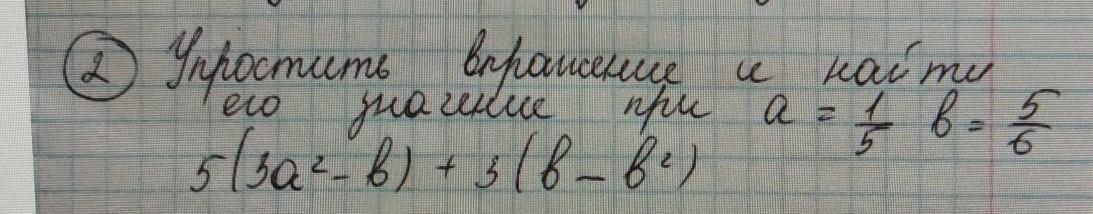 2 Упростить вражение и найти
его значение при a = 1/5 b = 5/6
5(3a² - b) + 3(b - b²)